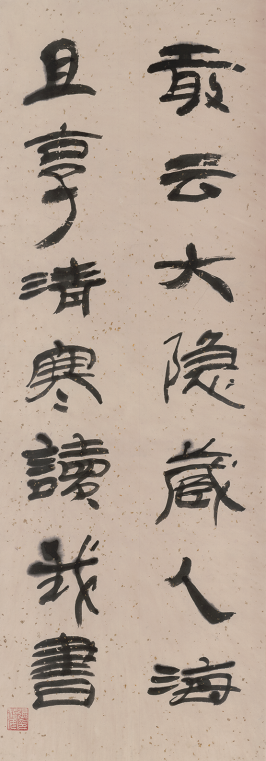 敢云大隐藏人海
且享清寒讀我書